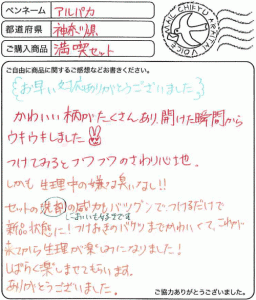 ペンネーム アルパカ
都道府県 神奈川県
ご購入商品 満喫セット
MAIL CHIKYU ARTIST VOICE
ご自由に商品に関するご感想などお書きください。
お早い対応ありがとうございました
かわいい柄がたくさんあり、開けた瞬間から
ウキウキしました
つけてみるとフワフワのさわり心地。
しかも生理中の嫌な臭いなし!!
セットの洗剤の威力もバツグンで、つけるだけで
においも好きです
新品状態に!つけおきのバケツまでかわいくて、これが
来てから生理が楽しみになりました!
しばらく楽しませてもらいます。
ありがとうございました。
ご協力ありがとうございました。